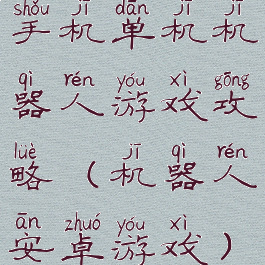 shǒu jī dān jī jī
手机单机机
qì rén yóu xì gōng
器人游戏攻
lüè jī qì rén
略（机器人
ān zhuó yóu xì
安卓游戏）